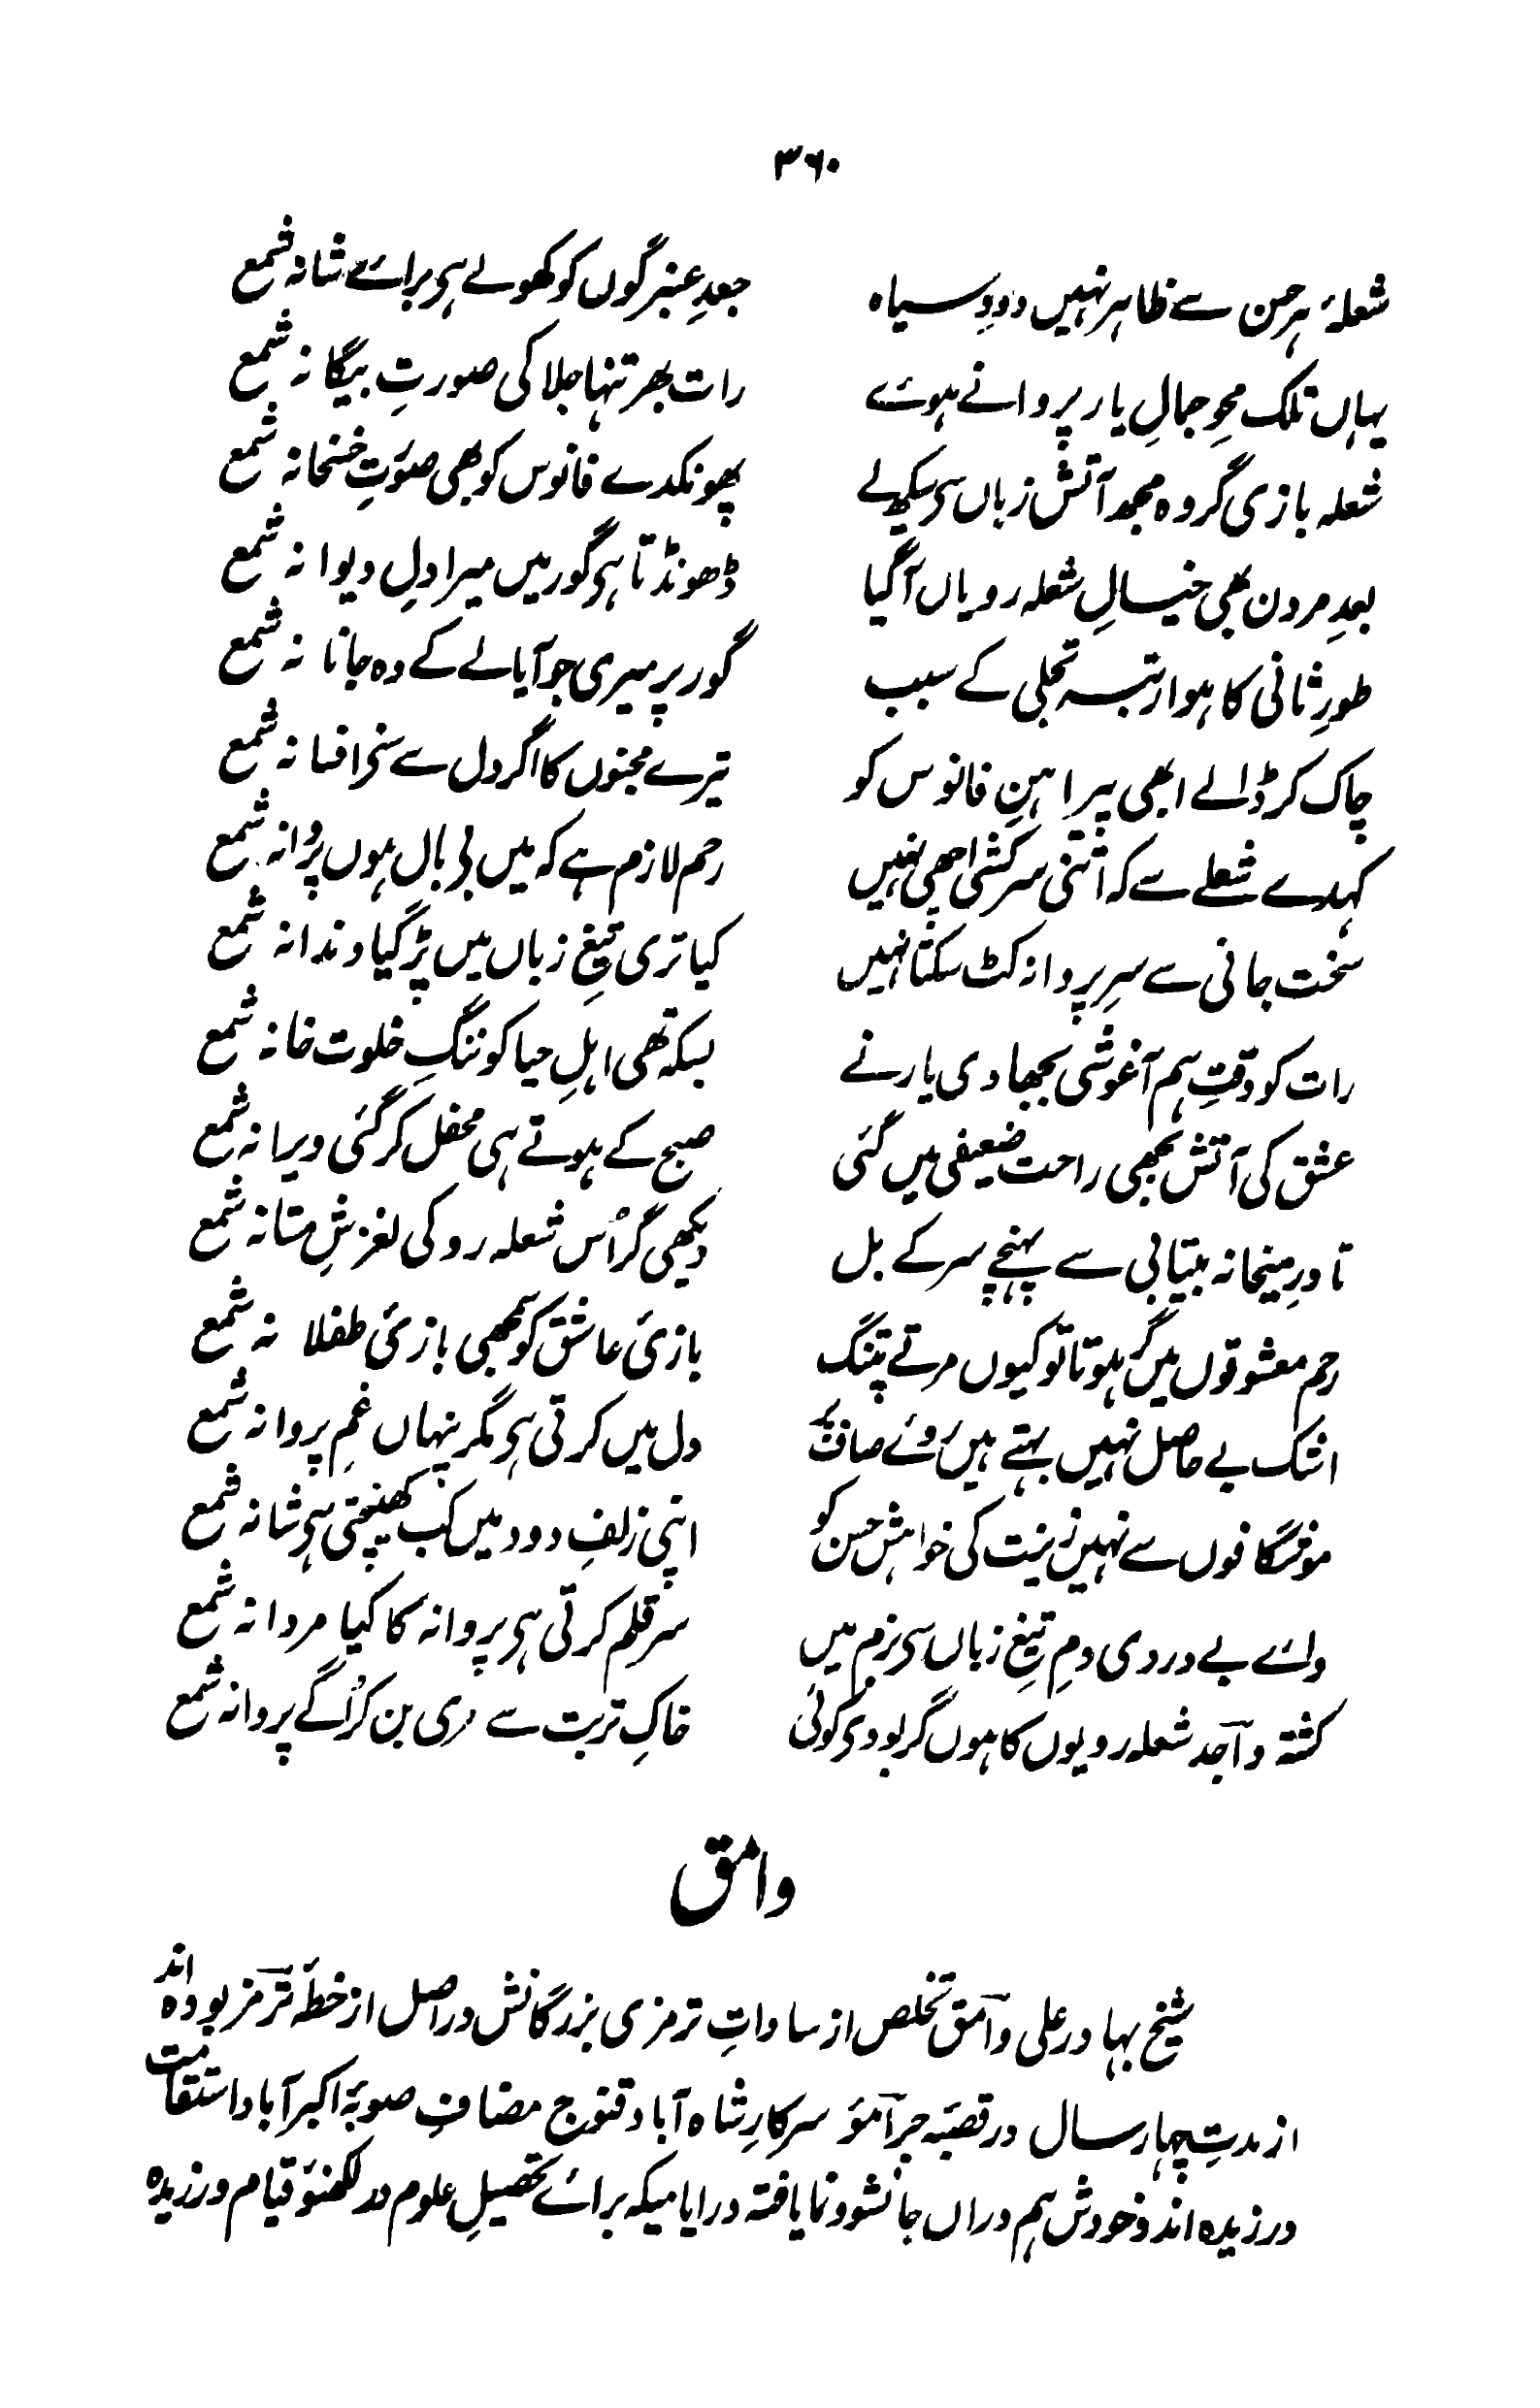 ۳۶۰
شعلۂ ہر حسن سے ظاہر نہیں دودِ سیاہ
جعدِ عنبرگوں کو کھولے ہی برائے شانہ شمع
یہاں تلک محوِ جمالِ یار پروانے ہوئے
رات بھر تنہا جلا کی صورتِ بیگانہ شمع
شعلہ بازی گر وہ مجھ آتش زباں سی سیکھ لے
پھونکدے فانوس کو بھی صورتِ خسخانہ شمع
بعدِ مردن بھی خیالِ شعلہ رویاں آگیا
ڈھونڈتا ہی گور میں میرا دلِ دیوانہ شمع
طورِ ثانی کا ہوا رتبہ تجلی کے سبب
گور پر میری جو آیا لے کے وہ جانانہ شمع
چاک کر ڈالے ابھی پیراہنِ فانوس کو
تیرے مجنوں کا اگر دل سے سنے افسانہ شمع
کہدے شعلے سے کہ اتنی سرکشی اچھی نہیں
رحم لازم ہے کہ میں بی بال ہوں پروانہ شمع
سخت جانی سے سرِ پروانہ کٹ سکتا نہیں
کیا تری تیغِ زباں میں پڑ گیا دندانہ شمع
رات کو وقتِ ہم آغوشی بجھا دی یار نے
بسکہ تھی اہلِ حیا کو ننگِ خلوت خانہ شمع
عشق کی آتش بجھی راحت ضعیفی میں گئی
صبح کے ہوتے ہی محفل کر گئی ویرانہ شمع
تا درِ میخانہ بیتابی سے پہنچے سر کے بل
دیکھی گر اُس شعلہ رو کی لغزشِ مستانہ شمع
رحم معشوقوں میں گر ہوتا تو کیوں مرتے پتنگ
بازیٔ عاشق کو سمجھی بازیٔ طفلانہ شمع
اشک بے حاصل نہیں بہتے ہیں روئے صاف پر
دل میں کرتی ہی مگر پنہاں غمِ پروانہ شمع
موشگافوں سے نہیں زینت کی خواہش حسن کو
اپنی زلفِ دود میں کب کھینچتی ہی شانہ شمع
وائے بے دردی دمِ تیغِ زباں سی بزم میں
سر قلم کرتی ہی پروانہ کا کیا مردانہ شمع
کشتہ واجد شعلہ رویوں کا ہوں گر بودی کوئی
خاکِ تربت سے مری بن کر اُگے پروانہ شمع
وامق
شیخ بہادر علی وامق تخلص از ساداتِ ترمزی بزرگانش در اصل از خطۂ ترمز بودہ اند
از مدتِ چہار سال در قصبہ سرکارِ شاہ آباد قنوج مضافِ صوبۂ اکبر آباد استقامت
ورزیدہ اند و خودش ہم دراں جا نشوونما یافتہ در ایامیکہ برائے تحصیلِ علوم در لکھنؤ قیام ورزیدہ